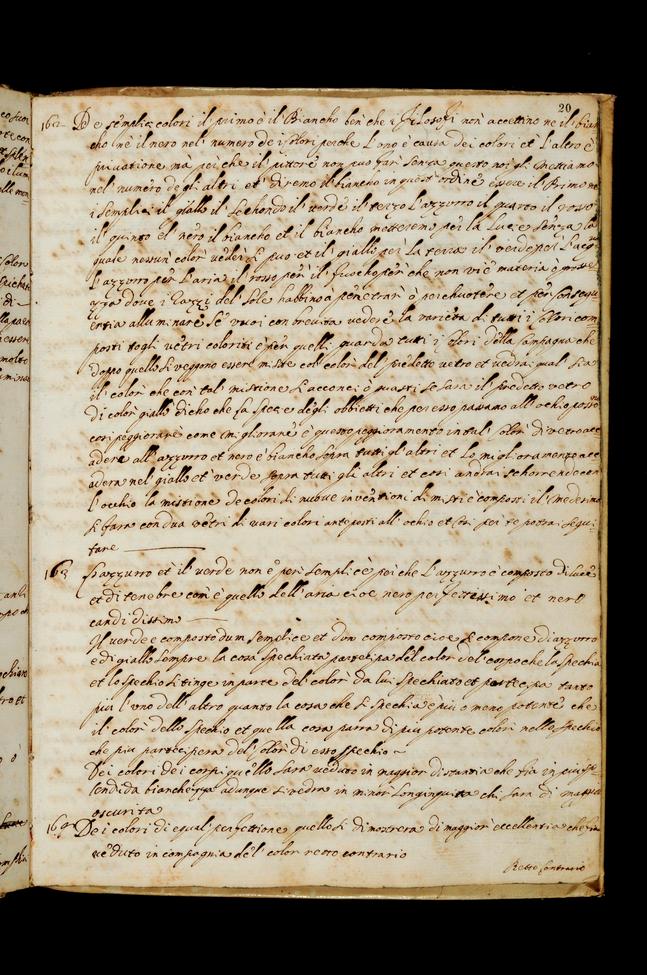 20
162 De semplici colori il primo è il Biancho ben che i Filosofi non accettino ne il bian
cho ne il nero nel numero de i colori perche l'uno è causa dei colori et l'altro è
privatione ma poi che il pittore non puo far senza questo noi gli mettiamo
nel numero degli altri et diremo il biancho in quest'ordine essere il Primo ne
i semplici il giallo il sechondo il verde il terzo l'azzurro il quarto il rosso
il quinto el nero il biancho et il biancho metteremo per la Luce senza la
quale nessun color veder si puo et il giallo per la terra il verde per l'acqua
l'azzurro per l'aria il rosso per il fuocho per che non vi è materia o gross
ezza dove i razzi del sole habbino a penetrar' o perchuotere et per consequ
entia alluminare Se vuoi con brevita vedere la varieta di tutti i Colori com
posti togli vetri coloriti e per quelli guarda tutti i colori della campagna che
doppo quello si veggono essere miste col color del predetto vetro et vedrai qual sia
il color che con tal' mistione s'acconci o guasti se sara il predetto vetro
di color giallo dicho che la spezie degli obbietti che per esso passano all'ochio posso
cosi peggiorare come migliorare e questo peggioramento in tal' color di vetro acc
adera all'azzurro et nero e biancho sopra tutti gli altri et lo migliora mento acc
adera nel giallo et verde sopra tutti gli altri et cosi andrai schorrendo con
l'occhio la mistione de colori di nuove inventioni di misti e composti il medesimo
si fara con dua vetri di vari colori anteposti all' ochio et cosi per te potrai segui
tare
163 L'azzurro et il verde non è per se semplice per che l'azzurro è composto di luce
et di tenebre com' è quello dell'aria cioe nero perfettissimo et nero
candidissimo
Il verde è composto dum semplice et dun composto cioe si compone d'azzurro
e di giallo sempre la cosa spechiata partecipa del color del corpo che la spechia
et lo spechio si tinge in parte del color da lui spechiato et partecipa tanto
piu l'uno dell'altro quanto la cosa che si spechia e piu o meno potente che
il color dello spechio et quella cosa parra di piu potente colori nello spechio
che piu partecipera del color di esso spechio
Dei colori dei corpi quello sara veduto in maggior distantia che fia in piu sp
lendida bianchezza adunque si vedra in minor longinquita chi sara di maggior
oscurita
164 De i colori di equal perfettione quello si dimostrera di maggior eccellentia che fia
veduto in compagnia del color retto contrario
Retto contrario